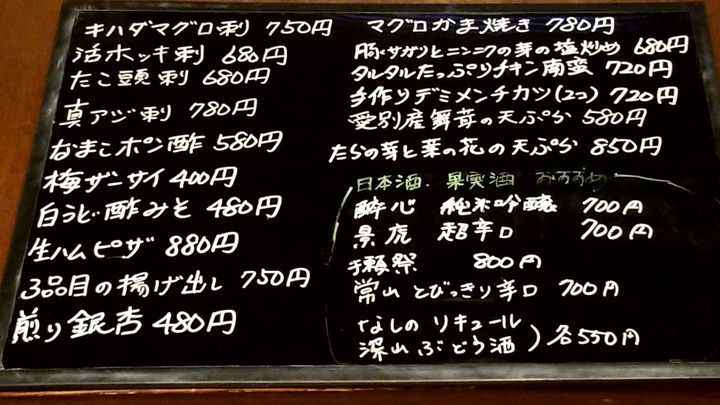 キハダマグロ刺 750円
活ホッキ刺 680円
たこ頭刺 680円
真アジ刺 780円
なまこポン酢 580円
梅ザーサイ 400円
白うど酢みそ 480円
生ハムピザ 880円
3品目の揚げ出し 750円
煎り銀杏 480円
マグロかま焼き 780円
豚サガリとニンニクの芽の塩炒め 680円
タルタルたっぷりチキン南蛮 720円
手作りデミメンチカツ(2コ) 720円
愛別産舞茸の天ぷら 580円
たらの芽と菜の花の天ぷら 850円
日本酒・果実酒 おすすめ
酔心 純米吟醸 700円
景虎 超辛口 700円
獺祭 800円
常山 とびっきり辛口 700円
なしの リキュール
深山 ぶどう酒 ) 各550円